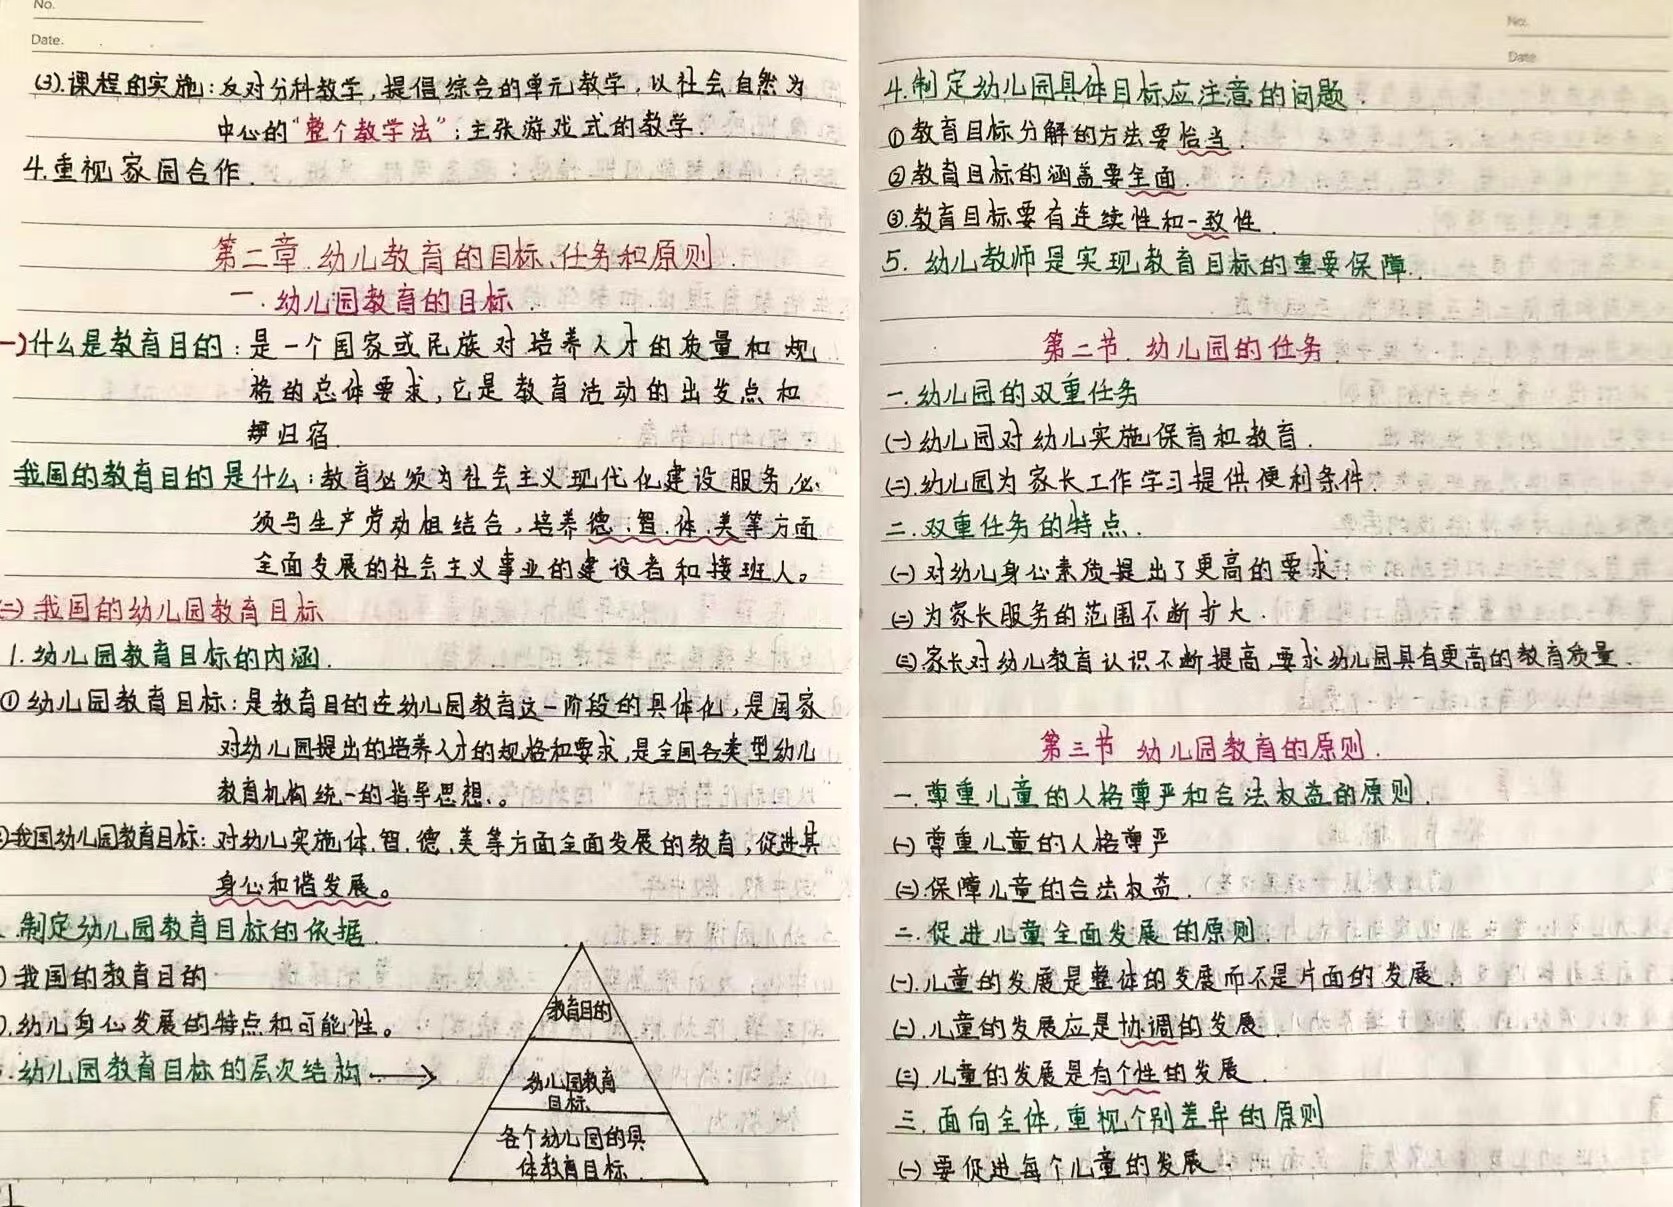 No.
Date.
(3).课程的实施:反对分科教学,提倡综合的单元教学,以社会自然为
中心的"整个教学法";主张游戏式的教学.
4.重视家园合作.
第二章.幼儿教育的目标、任务和原则.
一.幼儿园教育的目标.
一)什么是教育目的:是一个国家或民族对培养人才的质量和规
格的总体要求,它是教育活动的出发点和
归宿.
我国的教育目的是什么:教育必须为社会主义现代化建设服务,必
须与生产劳动相结合,培养德.智.体.美等方面
全面发展的社会主义事业的建设者和接班人。
(二).我国的幼儿园教育目标
1.幼儿园教育目标的内涵.
①幼儿园教育目标:是教育目的在幼儿园教育这一阶段的具体化,是国家
对幼儿园提出的培养人才的规格和要求,是全国各类型幼儿
教育机构统一的指导思想.。
我国幼儿园教育目标:对幼儿实施体.智.德.美等方面全面发展的教育,促进其
身心和谐发展。
.制定幼儿园教育目标的依据.
)我国的教育目的
).幼儿身心发展的特点和可能性。
.幼儿园教育目标的层次结构.→
教育目的
幼儿园教育
目标
各个幼儿园的具
体教育目标.
No.
Date
4.制定幼儿园具体目标应注意的问题.
①教育目标分解的方法要恰当.
②教育目标的涵盖要全面.
③教育目标要有连续性和一致性.
5.幼儿教师是实现教育目标的重要保障.
第二节.幼儿园的任务.
一.幼儿园的双重任务
(一)幼儿园对幼儿实施保育和教育.
(二).幼儿园为家长工作学习提供便利条件.
二.双重任务的特点.
(一)对幼儿身心素质提出了更高的要求.
(二)为家长服务的范围不断扩大.
(三)家长对幼儿教育认识不断提高,要求幼儿园具有更高的教育质量.
第三节 幼儿园教育的原则.
一.尊重儿童的人格尊严和合法权益的原则.
(一)尊重儿童的人格尊严
(二).保障儿童的合法权益.
二.促进儿童全面发展的原则.
(一).儿童的发展是整体的发展而不是片面的发展.
(二).儿童的发展应是协调的发展.
(三).儿童的发展是有个性的发展.
三.面向全体,重视个别差异的原则
(一)要促进每个儿童的发展.